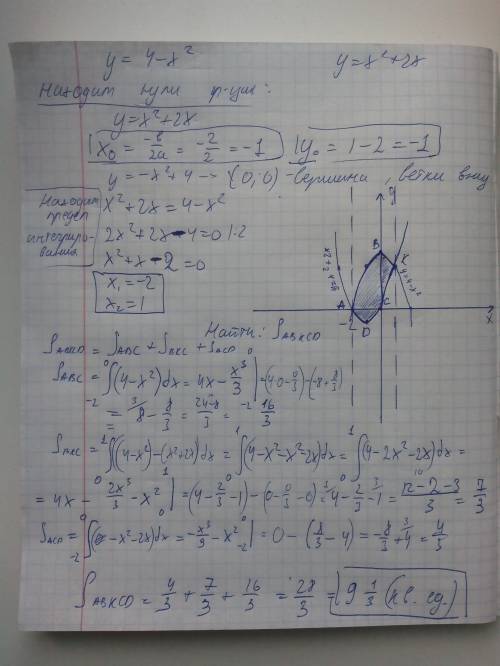 y = 4-x² y = x²+2x
Находим нули ф-ции:
y = x²+2x
x₀ = -b/2a = -2/2 = -1 y₀ = 1-2 = -1
y = -x²+4 -> (0; 0) - вершина, ветки вниз
Находим предел интегрирования
x²+2x = 4-x²
2x²+2x-4=0 |:2
x²+x-2=0
x₁ = -2
x₂ = 1
y
B
K
y = x²+2x
y = 4-x²
A
C
-2
D
x
Найти: S ABKCD
S ABKCD = S ABC + S BKC + S ACD
S ABC = ∫₋₂⁰ (4-x²)dx = 4x - x³/3 |₋₂⁰ = (4·0-0/3)-(-8+8/3)
= 8 - 8/3 = (24-8)/3 = 16/3
S BKC = ∫₀¹ ((4-x²)-(x²+2x))dx = ∫₀¹ (4-x²-x²-2x)dx = ∫₀¹ (4-2x²-2x)dx =
= 4x - 2x³/3 - x² |₀¹ = (4-2/3-1)-(0-0/3-0) = 4-2/3-1 = (12-2-3)/3 = 7/3
S ACD = ∫₋₂⁰ (0-x²-2x)dx = -x³/3 - x² |₋₂⁰ = 0-(8/3-4) = -8/3+4 = 4/3
S ABKCD = 4/3 + 7/3 + 16/3 = 28/3 = 9 1/3 (кв. ед.)